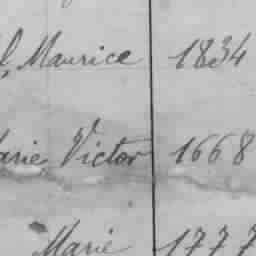 Maurice 1834
Marie Victor 1668
Marie 1777